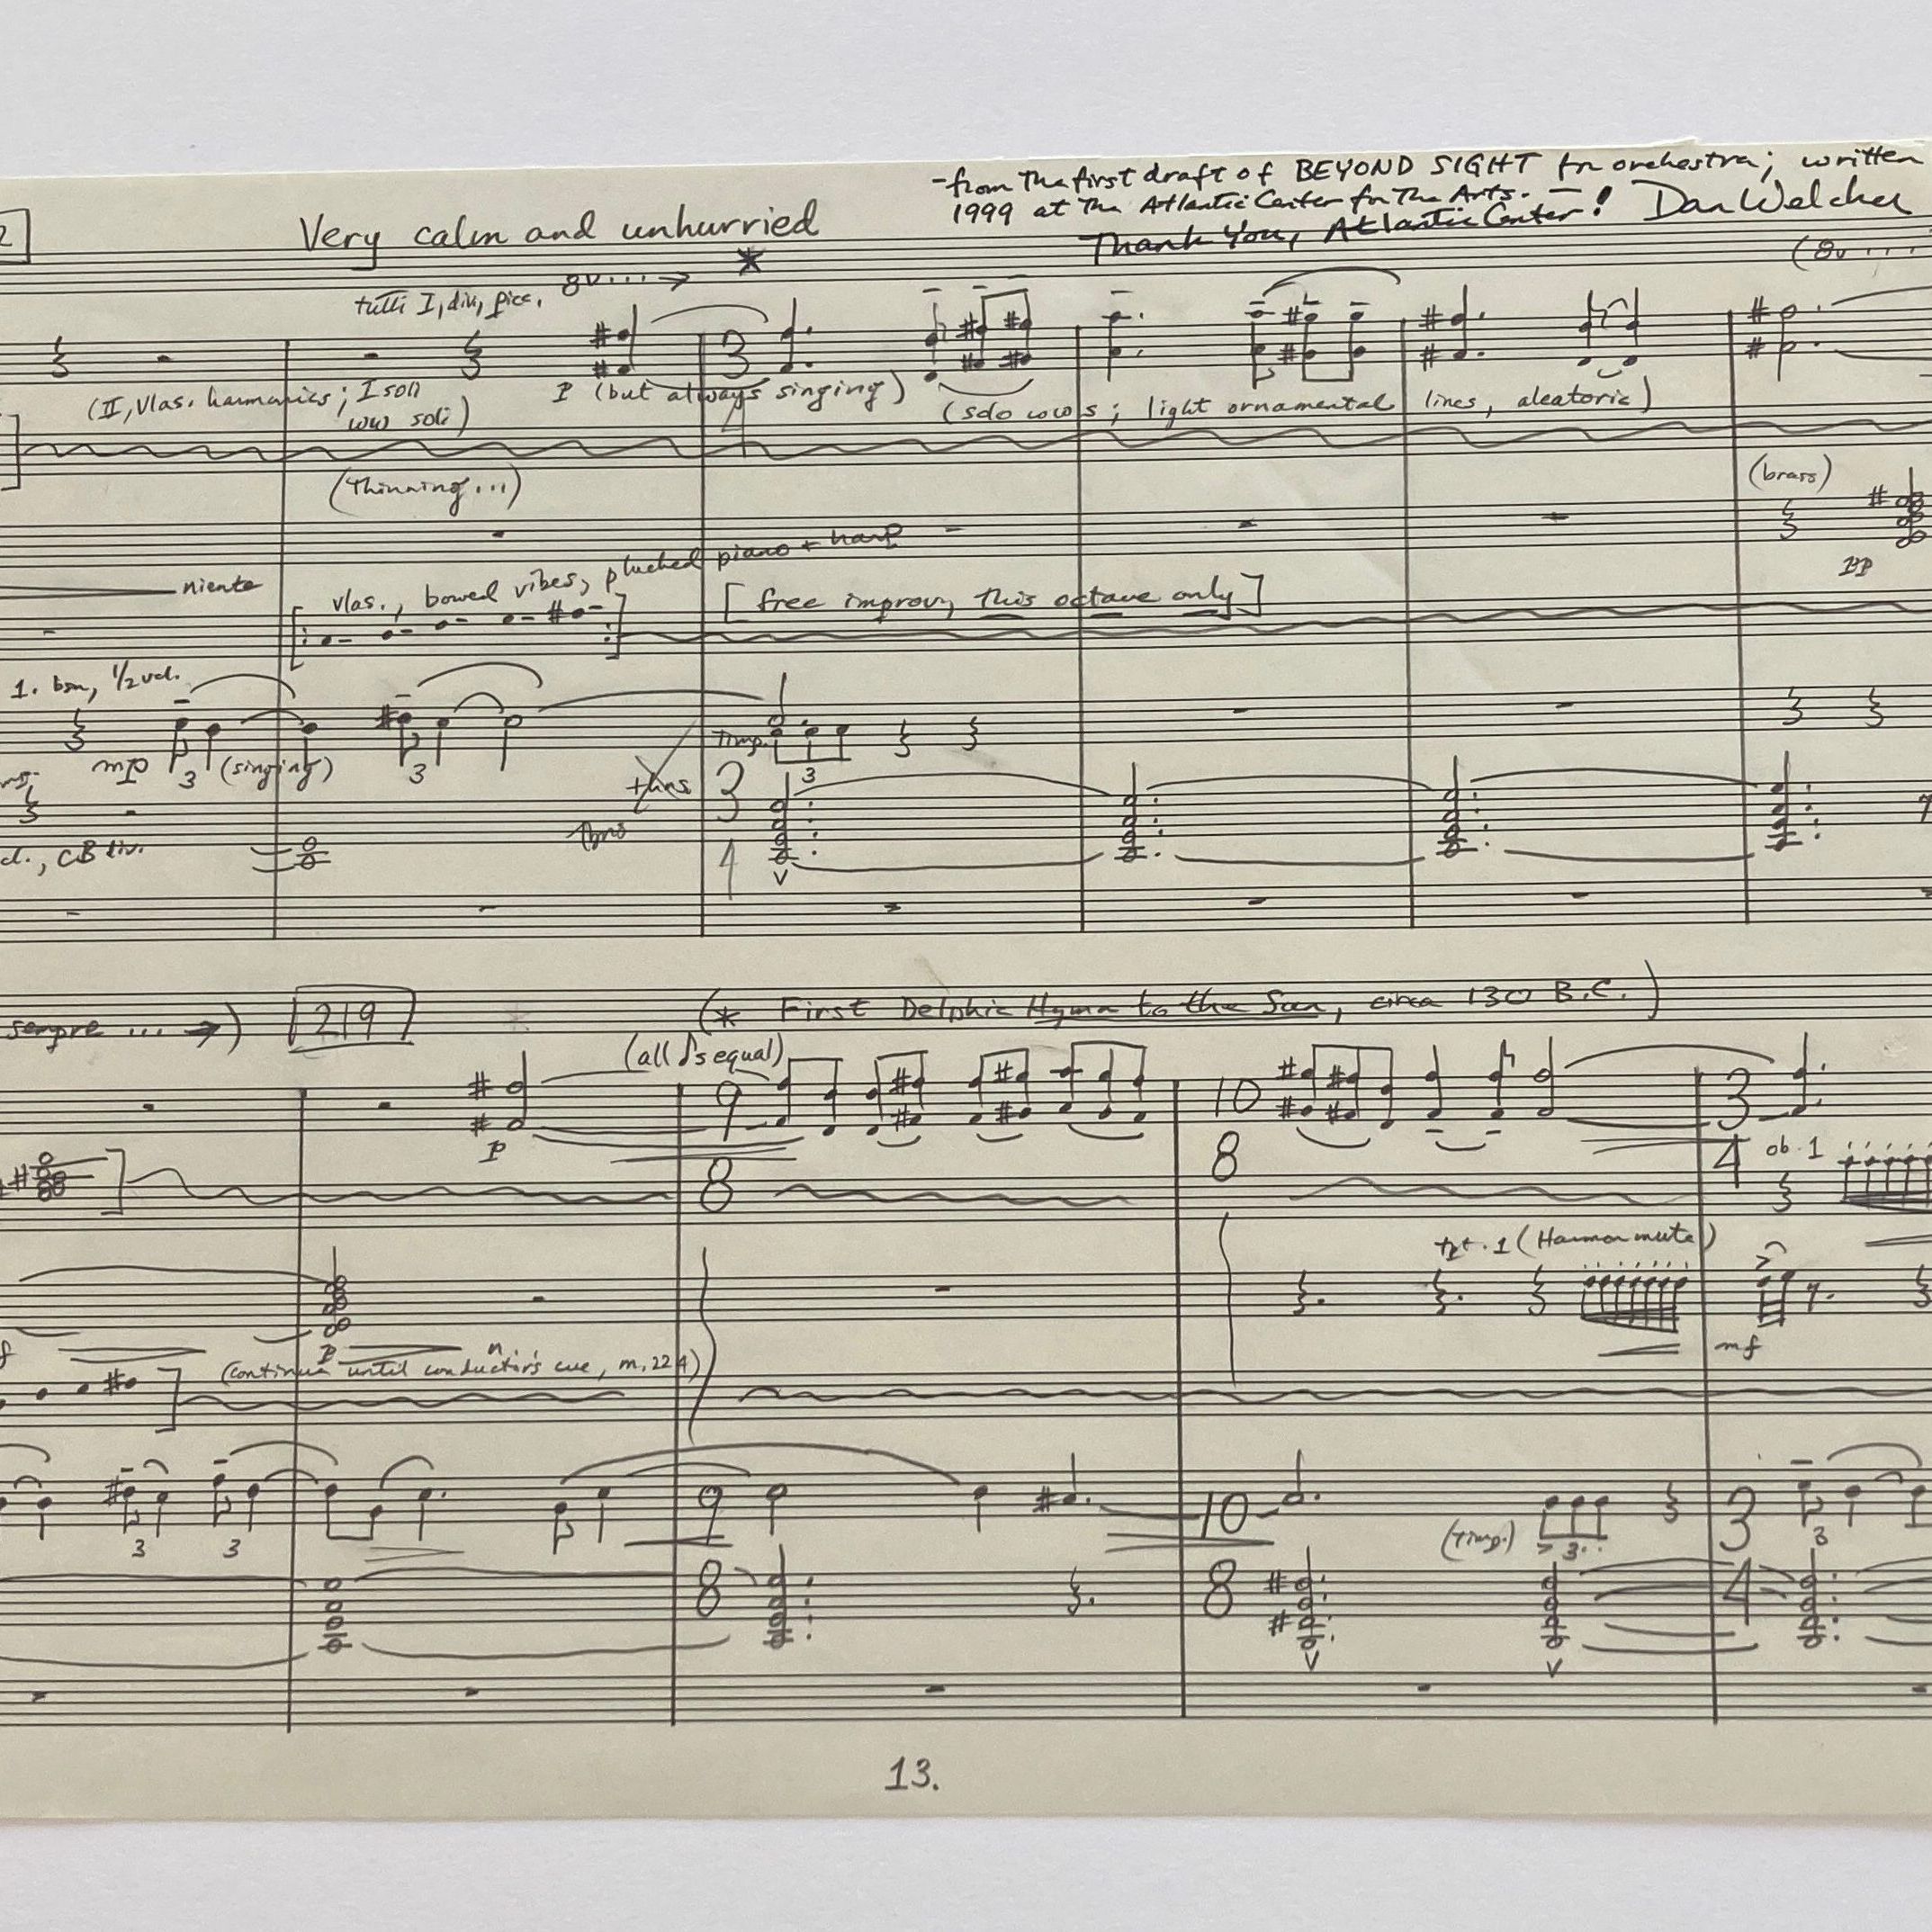 -from the first draft of BEYOND SIGHT for orchestra; written
1999 at the Atlantic Center for the Arts. —
Thank You, Atlantic Center! Dan Welcher
2
Very calm and unhurried
*
(8v ....
tutti I, div, picc. 8v.... →
3
4
P (but always singing)
(II, Vlas. harmonics; I soli
ww soli)
(solo wws; light ornamental lines, aleatoric)
(thinning...)
(brass)
PP
niente
vlas., bowed vibes, plucked piano + harp
[free improv, this octave only]
1. bsn, 1/2 vcl.
mp 3 (singing) 3
Timp. 3
Tbns
3
4
CB div.
sempre ... →)
219
(* First Delphic Hymn to the Sun, circa 130 B.C.)
(all ♪s equal)
P
9
8
10
8
3
4
ob. 1
tpt. 1 (Harmon mute)
mf
f
P
n.
(continue until conductor's cue, m. 224)
3 3
9
8
10
8
(Timp.) 3
3
4
3
13.